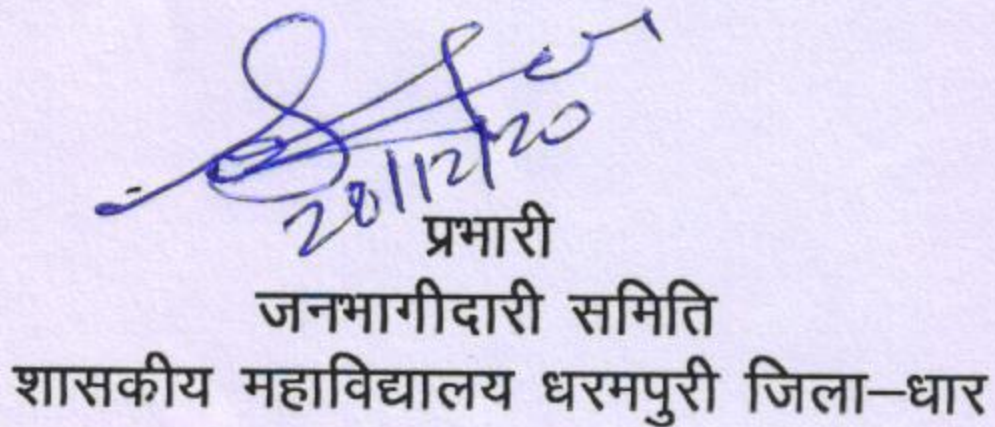 28/12/20
प्रभारी
जनभागीदारी समिति
शासकीय महाविद्यालय धरमपुरी जिला–धार